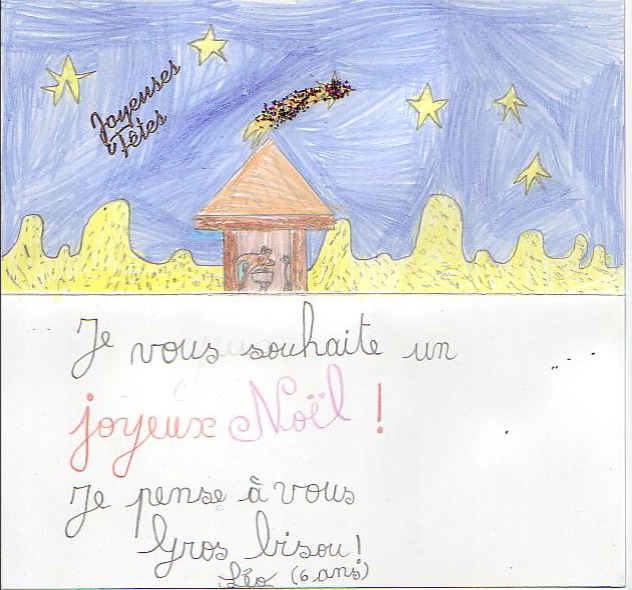 Joyeuses
Fêtes
Je vous souhaite un
joyeux Noël !
Je pense à vous
Gros bisou !
Léo (6 ans)